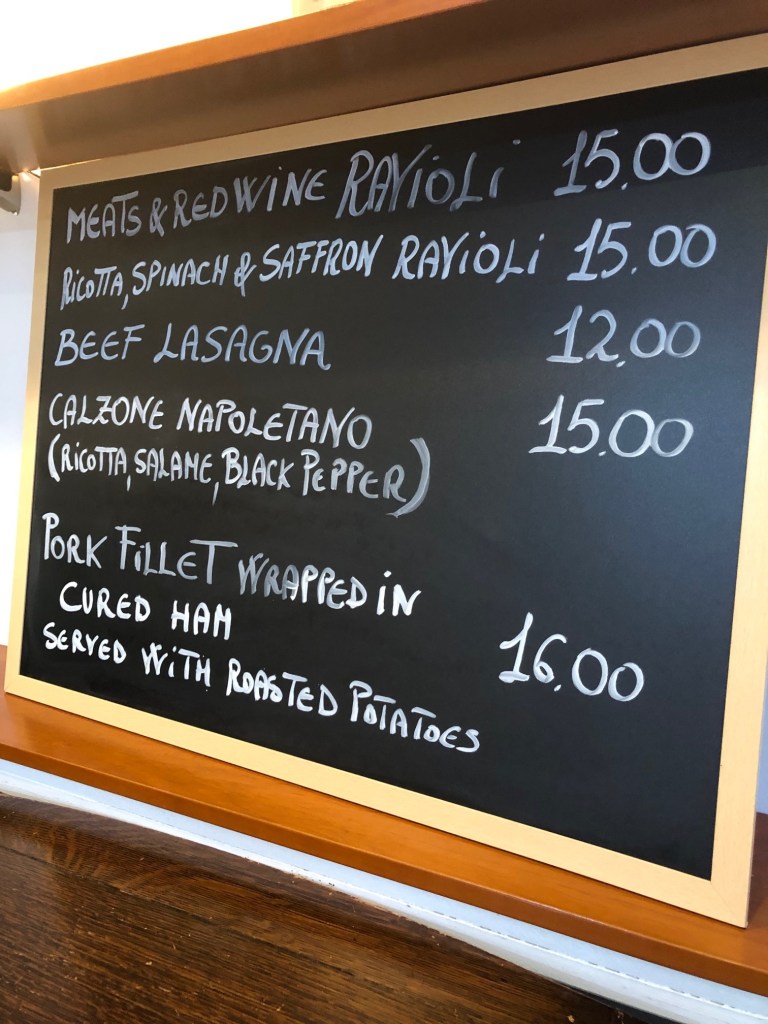 MEATS & RED WINE RAViOLi 15.00
RiCOTTA, SPINACH & SAFFRON RAViOLi 15.00
BEEF LASAGNA 12.00
CALZONE NAPOLETANO 15.00
(RiCOTTA, SALAME, BLACK PEPPER)
PORK FiLLET WRAPPED iN
CURED HAM 16.00
SERVED WiTH ROASTED POTATOES